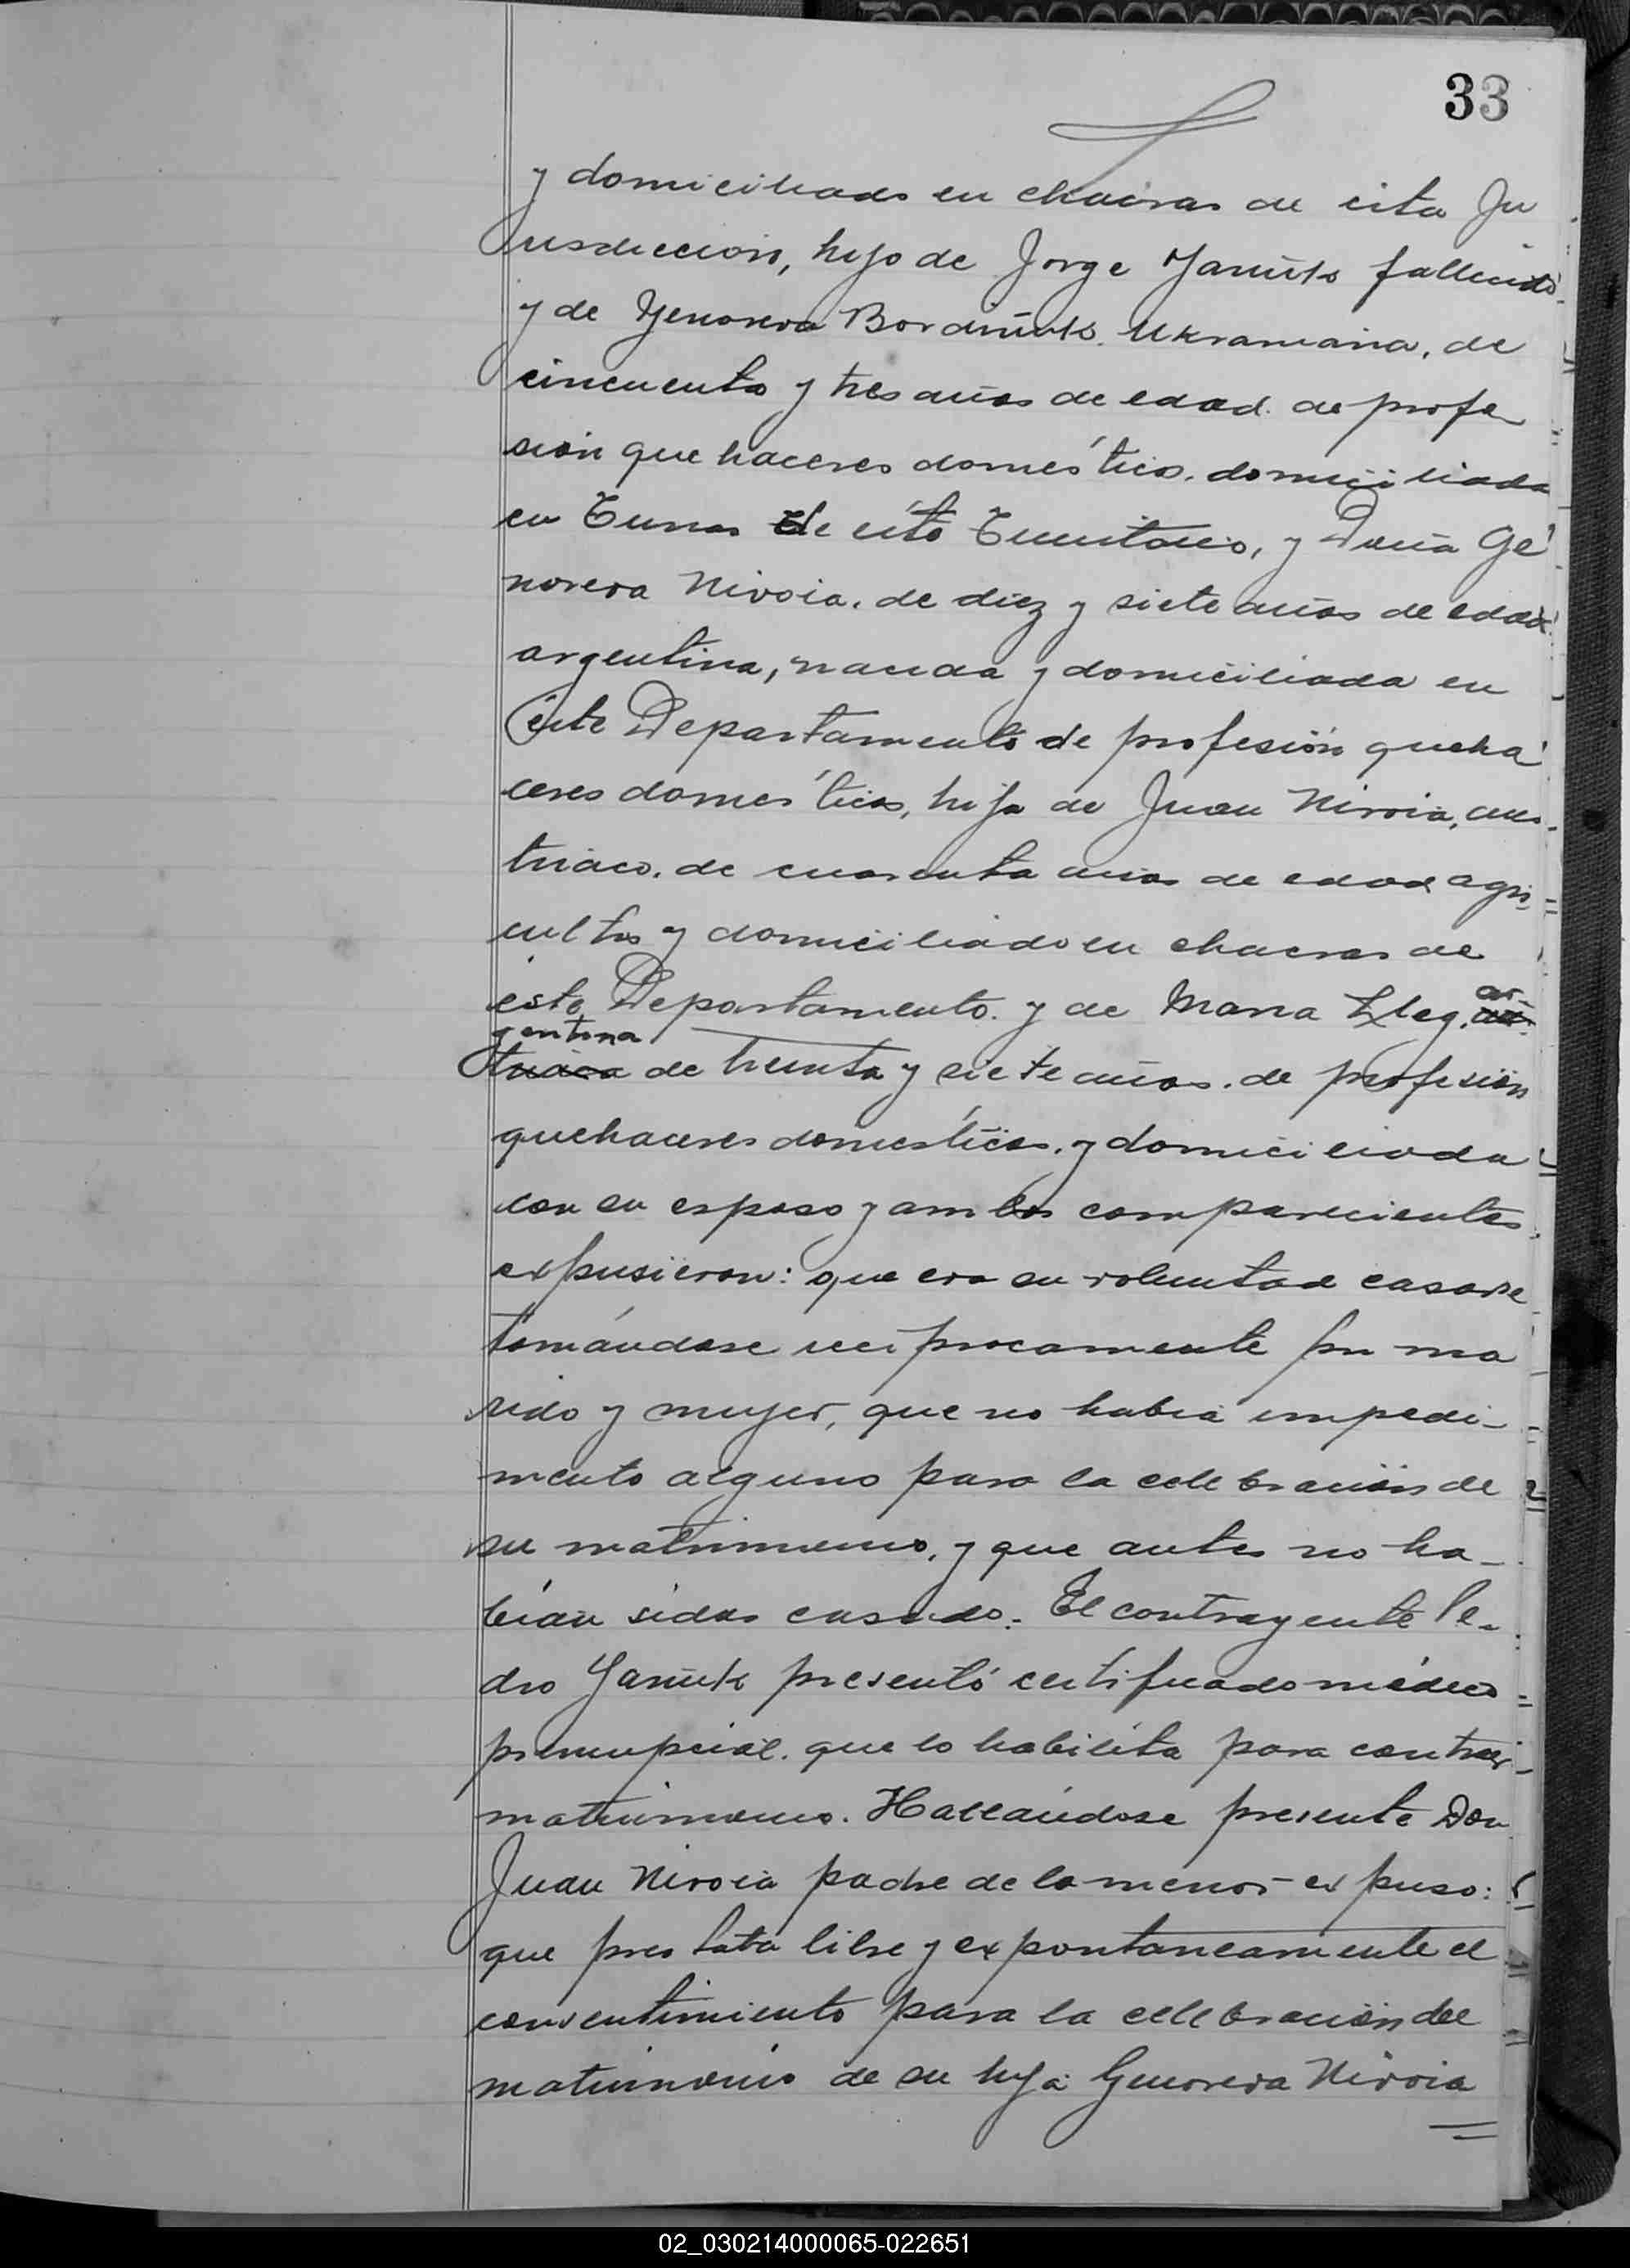 33
y domiciliado en chacras de esta Ju
risdiccion, hijo de Jorge Yañuk fallecido
y de Genoveva Bordiñuk. Ukraniana, de
cincuenta y tres años de edad. de profe
sión que haceres domésticos. domiciliada
en de este Territorio, y Doña Ge
noveva Nivoia. de diez y siete años de edad
argentina, nacida y domiciliada en
este Departamento de profesión queha
ceres domésticos, hija de Juan Nivoia, aus-
triaco. de cuarenta años de edad agri
cultor y domiciliado en chacras de
este Departamento. y de Maria Lleg. ar-
gentina
triaca de treinta y siete años. de profesión
quehaceres domésticos. y domiciliada
con su esposo y ambos comparecientes
expusieron: que era su voluntad casarse
tomándose reciprocamente por ma
rido y mujer, que no habia impedi-
mento alguno para la celebración de
su matrimonio, y que antes no ha-
bian sidos casado. El contrayente Pe-
dro Yañuk presentó certificado médico
prenupcial. que lo habilita para contraer
matrimonio. Hallándose presente Don
Juan Nivoia padre de la menor expuso:
que prestaba libre y expontaneamente el
consentimiento para la celebración del
matrimonio de su hija Genoveva Nivoia
02_030214000065-022651